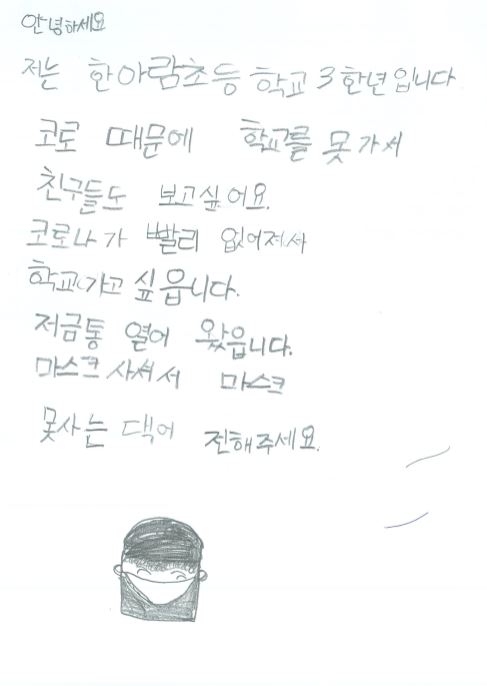 안녕하세요
저는 한아람초등학교 3한년입니다
코로 때문에 학교를 못가서
친구들도 보고싶어요.
코로나가 빨리 없어져서
학교가고 싶읍니다.
저금통 열어 왔읍니다.
마스크 사셔서 마스크
못사는 댁에 전해주세요.